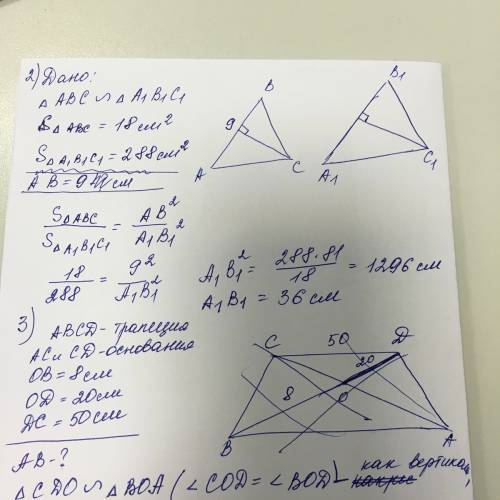 2) Дано:
△ABC ∽ △A1B1C1
S△ABC = 18 см²
S△A1B1C1 = 288 см²
AB = 9 см
B
9
A
C
B1
A1
C1
S△ABC / S△A1B1C1 = AB² / A1B1²
18/288 = 9² / A1B1²
A1B1² = 288·81 / 18 = 1296 см
A1B1 = 36 см
3)
ABCD - трапеция
AC и CD - основания
OB = 8 см
OD = 20 см
DC = 50 см
AB - ?
C
50
D
20
8
O
B
A
△CDO ∽ △BOA (∠COD = ∠BOD - как вертикал,